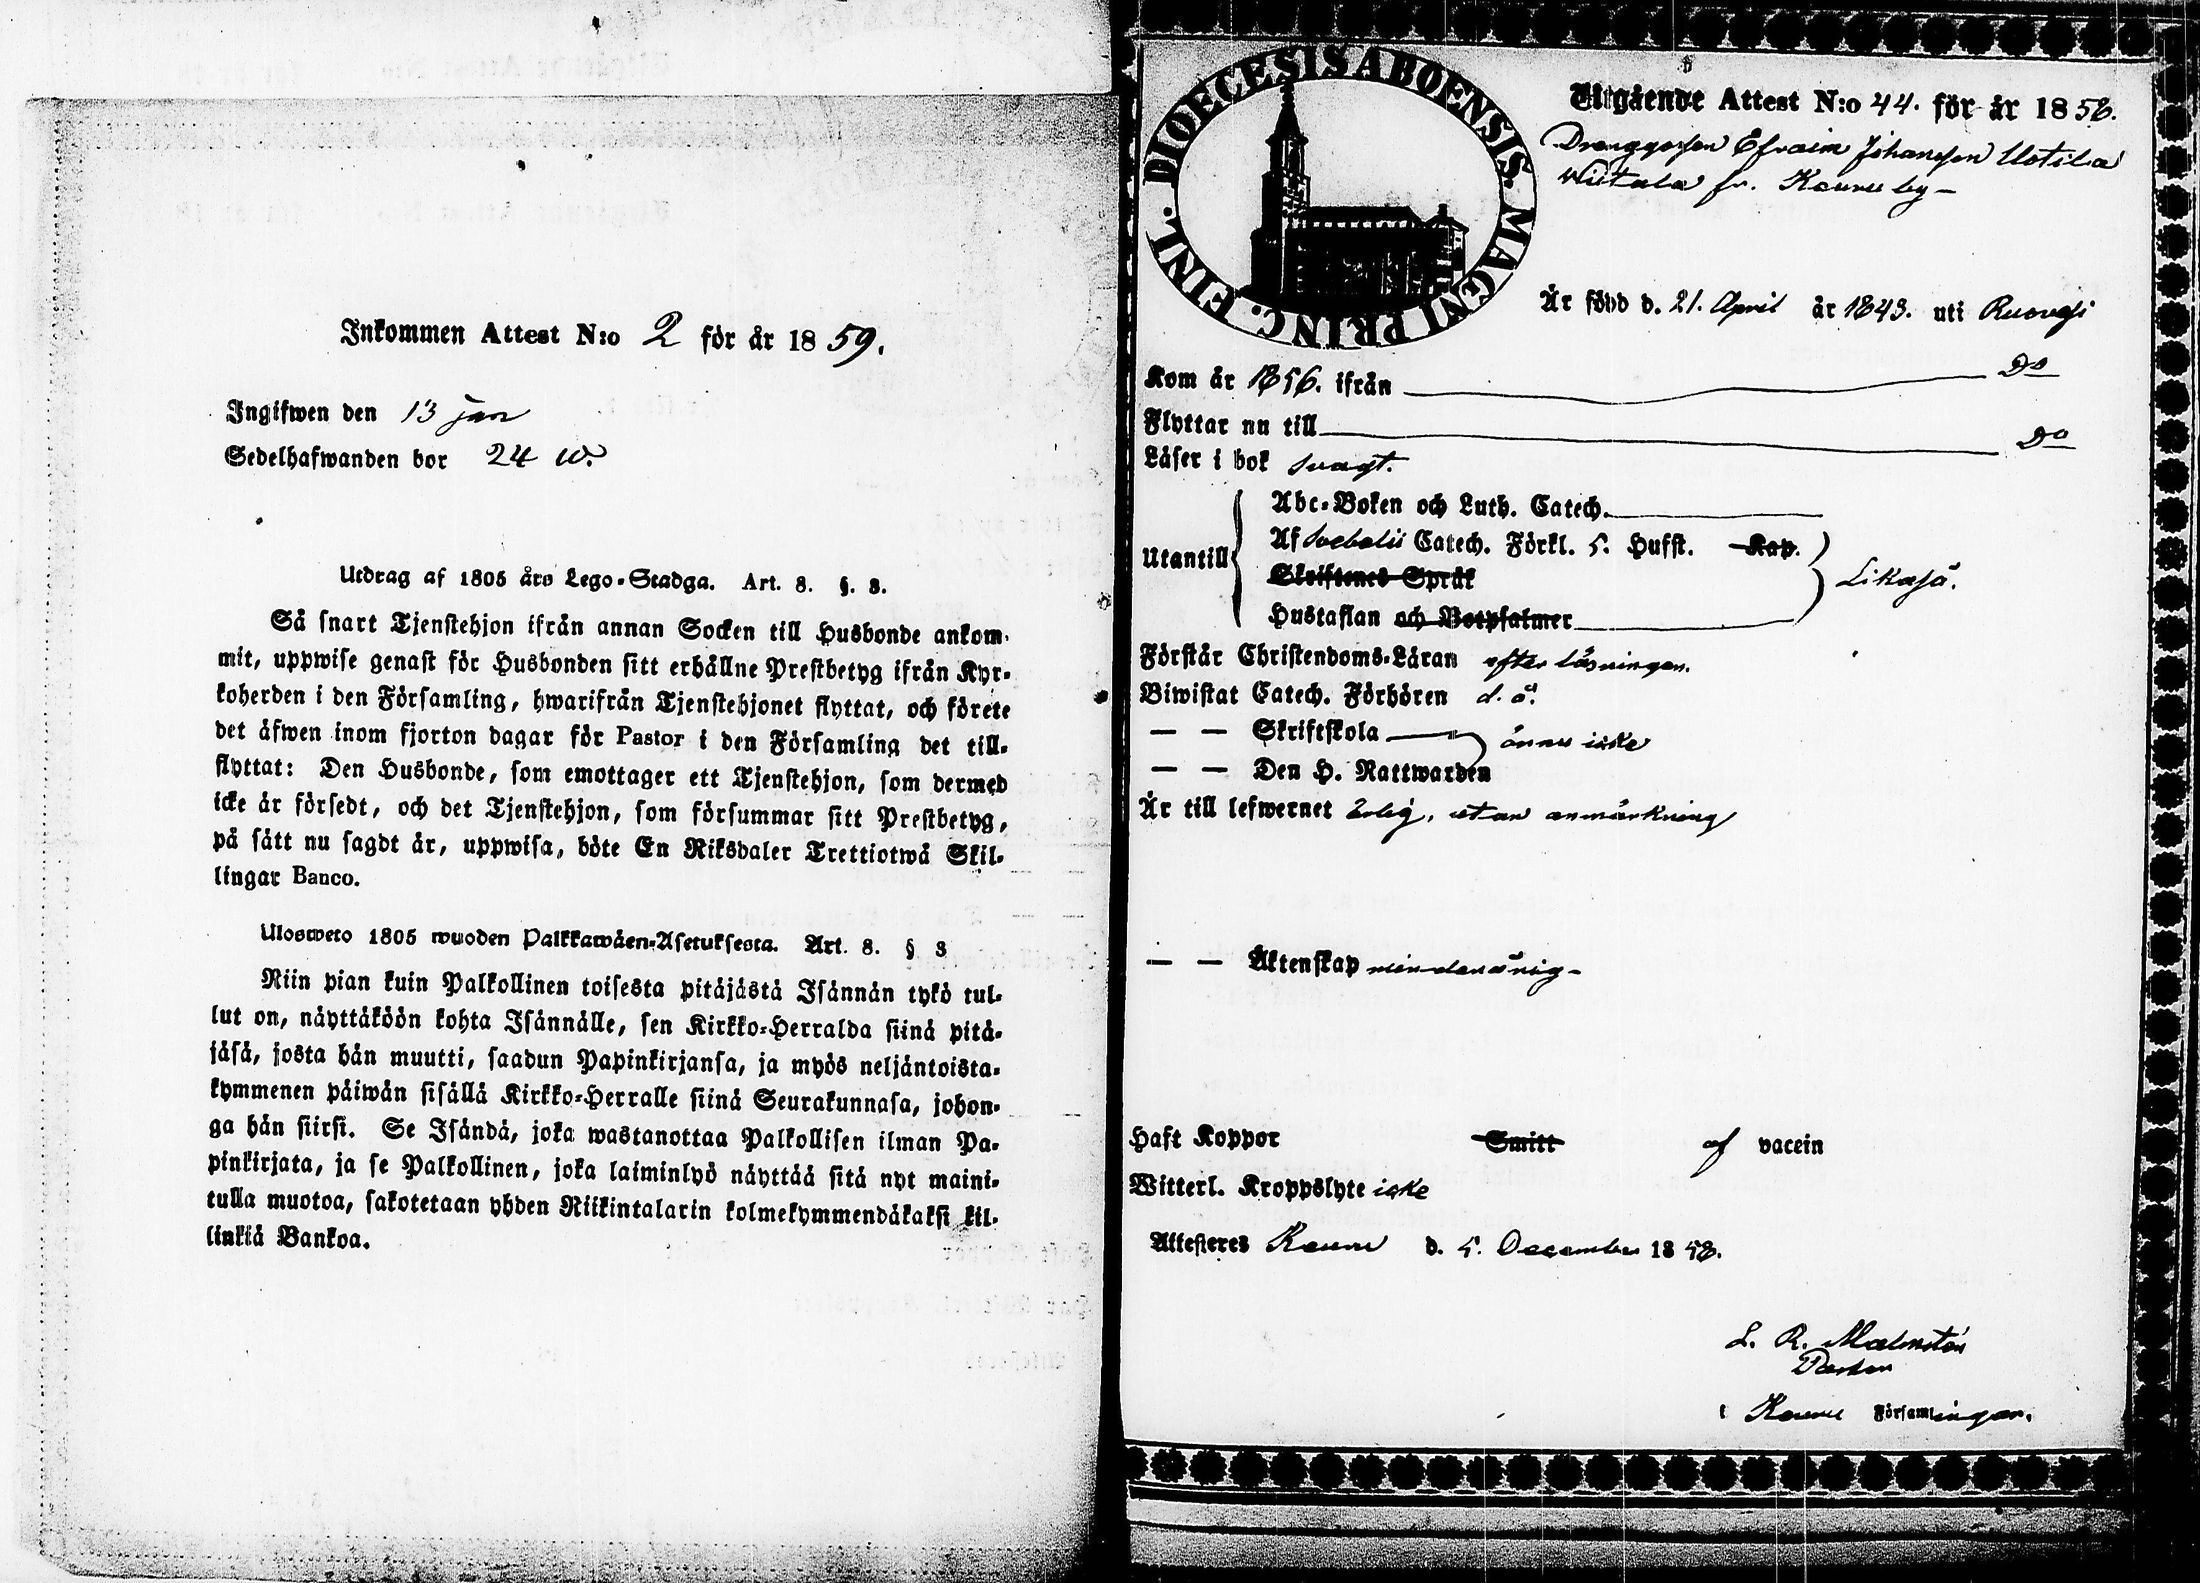 Inkommen Attest N:o 2 för år 1859.
Ingifwen den 13 jan
Sedelhafwanden bor 24 w.
Utdrag af 1805 års Lego-Stadga. Art. 8. §. 3.
Så snart Tjenstehjon ifrån annan Socken till Husbonde ankom-
mit, uppwise genast för Husbonden sitt erhållne Prestbetyg ifrån Kyr-
koherden i den Församling, hwarifrån Tjenstehjonet flyttat, och förete
det äfwen inom fjorton dagar för Pastor i den Församling det till-
flyttat: Den Husbonde, som emottager ett Tjenstehjon, som dermed
icke är försedt, och det Tjenstehjon, som försummar sitt Prestbetyg,
på sätt nu sagdt är, uppwisa, böte En Riksdaler Trettiotwå Skil-
lingar Banco.
Ulosweto 1805 wuoden Palkkawäen-Asetuksesta. Art. 8. § 3
Niin pian kuin Palkollinen toisesta pitäjästä Isännän tykö tul-
lut on, näyttäköön kohta Isännälle, sen Kirkko-Herralda siinä pitä-
jäsä, josta hän muutti, saadun Papinkirjansa, ja myös neljäntoista-
kymmenen päiwän sisällä Kirkko-Herralle siinä Seurakunnasa, johon-
ga hän siirsi. Se Isändä, joka wastanottaa Palkollisen ilman Pa-
pinkirjata, ja se Palkollinen, joka laiminlyö näyttää sitä nyt maini-
tulla muotoa, sakotetaan yhden Riikintalarin kolmekymmendäkaksi kil-
linkiä Bankoa.
DIOECESIS ABOENSIS. MAGNI PRINC. FINL.
Utgående Attest N:o 44. för år 1858.
Drenggossen Efraim Johansson Uotila
fr. Keuru by –
Är född d. 21. April år 1843. uti Ruovesi
Kom år 1856. ifrån Do
Flyttar nu till Do
Läser i bok svagt.
Utantill
Abc-Boken och Luth. Catech.
Af Svebelii Catech. Förkl. 5. Hufst. Kap.
Skriftenes Språk
Likaså.
Hustaflan och Botpsalmer
Förstår Christendoms-Läran efter läsningen.
Biwistat Catech. Förhören d. o.
— — Skriftskola
ännu icke
— — Den H. Nattwarden
Är till lefwernet ärlig, utan anmärkning
— — Äktenskap minderårig –
Haft Koppor Smitt af vacein
Witterl. Kroppslyte icke
Attesteres Keuru d. 5. December 1858.
L. R. Malmstén
Pastor
i Keuru Församlingar.